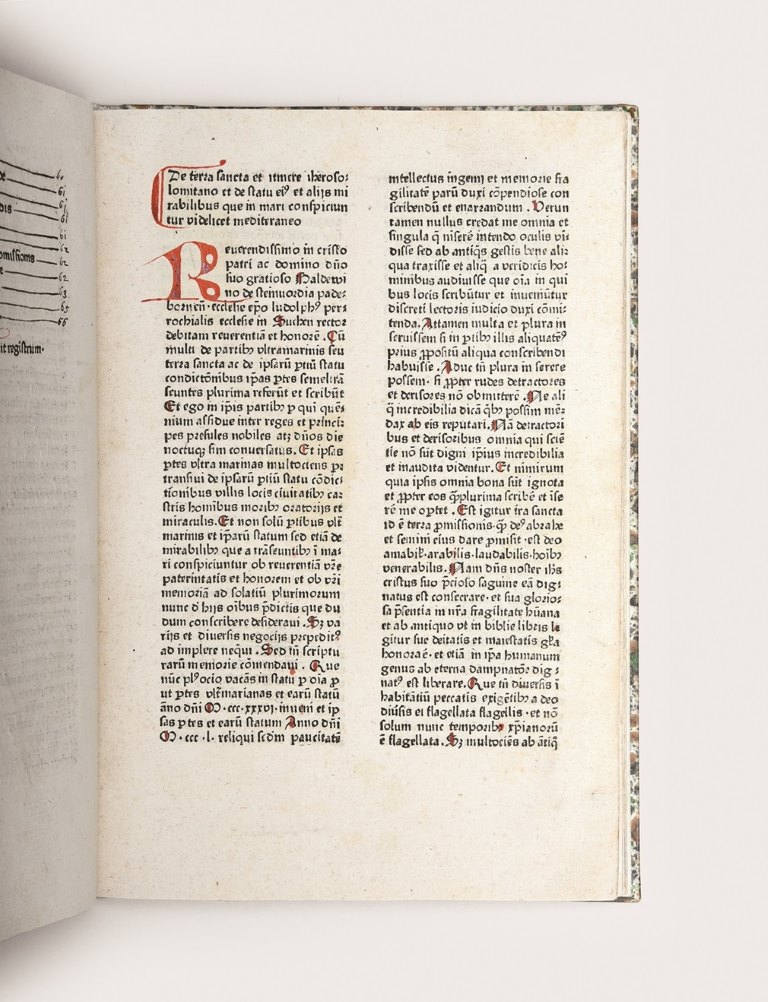 de
dis
omissioms
e
60
61
61
61
62
62
62
63
65
66
it registrum·
De terra sancta et itinere iheroso⸗
lomitano et de statu eiꝰ et alijs mi
rabilibus que in mari conspiciun
tur videlicet mediterraneo
Reuerendissimo in cristo
patri ac domino dño
suo gratioso Baldewi
no de steinuordia pade⸗
borneñ· ecclesie ep̄o ludolphꝰ per⸗
rochialis ecclesie in Suchen rector
debitam reuerentiā et honorē . Cū
multi de partibꝰ vltramarinis seu
terra sancta ac de ipsarū ꝑtiū statu
condictōmibus ip̄as ꝑtes semel trā
seuntes plurima referūt et scribūt
Et ego in ip̄is partibꝰ ꝑ quīquē⸗
nium assidue inter reges et princi⸗
pes presules nobiles atꝫ dūos die
noctuqꝫ sim conuersatus. Et ipsas
ꝑtes vltra marinas multociens ꝑ⸗
transiui de ipsarū ꝑtiū statu cōdic⸗
tiombus villis locis ciuitatibꝰ ca⸗
stris hominibus moribꝰ oratorijs et
miraculis. Et non solū ꝑtibus vlt̄
marinis et ip̄arū statum sed etiā de
mirabilibꝰ que a trāseuntibꝰ ī ma⸗
ri conspiciuntur ob reuerentiā vr̄e
paternitatis et honorem et ob vr̄i
memoriā ad solatiū plurimorum
nunc d hijs oībus p̄dictis que du
dum conscribere desideraui . Sꝫ va
rijs et diuersis negocijs prepeditꝰ
ad implere nequi . Sed tñ scriptu
rarū memorie cōmendaui . Que
nūc plꝰ ocio vacās in statu ꝑ oīa ꝓ
ut ꝑtes vlt̄marianas et earū statū
āno dñi M· ccc·xxxvj· inueni et ip
sas ꝑtes et earū statum Anno dñi
M· ccc ·l· reliqui scd̄m paucitatē
intellectus ingenij et memorie fra
gilitatē parū duxi cōpendiose con
scribendū et enarrandum . Verun
tamen nullus credat me omnia et
singula q̄ inserē intendo oculis vi⸗
disse sed ab antiqꝫ gestis bene aliꝗ
qua traxisse et aliq̄ a veridicis ho⸗
minibus audiuisse que oīa in qui
bus locis scribūtur et inueniūtur
discreti lectoris iudicio duxi cōmi⸗
tenda. Attamen multa et plura in
seruissem si in ꝑtibꝰ illis aliquatēꝰ
prius ꝓpositū aliqua conscribendi
habuisse . Aduc tñ plura in serere
possem· si ꝓpter rudes detractores
et derisores nō obmitterē. Ne ali
q̄ incredibilia dicā qbꝫ possim mē⸗
dax ab eis reputari. Nā detractori
bus et derisoribus omnia qui sciē
tie nō sūt digni ip̄ius incredibilia
et inaudita videntur. Et nimirum
quia ipsis omnia bona sūt ignota
et ꝓpter eos q̄plurima scribē et īse
rē me oꝑtet . Est igitur īra sancta
id ē terra ꝓmissionis· q̄ deꝰ abrahe
et semini eius dare ꝓmisit· est deo
amabił· arabilis· laudabilis· hoībꝰ
venerabilis. Nam dñs noster ihs
cristus suo p̄cioso saguine eā dig⸗
natus est consecrare· et sua glorio⸗
sa p̄sentia in nr̄a fragilitate hūana
et ab antiquo vt in biblie libris le
gitur sue deitatis et maiestatis gła
honora ē· et etiā in ip̄a humanum
genus ab eterna dampnatōe dig⸗
natꝰ est liberare. Que tñ diuersis ī
habitātiū peccatis exigētibꝰ a deo
diuisis ei flagellata flagellis· et nō
solum nunc temporibꝫ xp̄ianorū
ē flagellata. Sꝫ multociēs ab ātiq̄